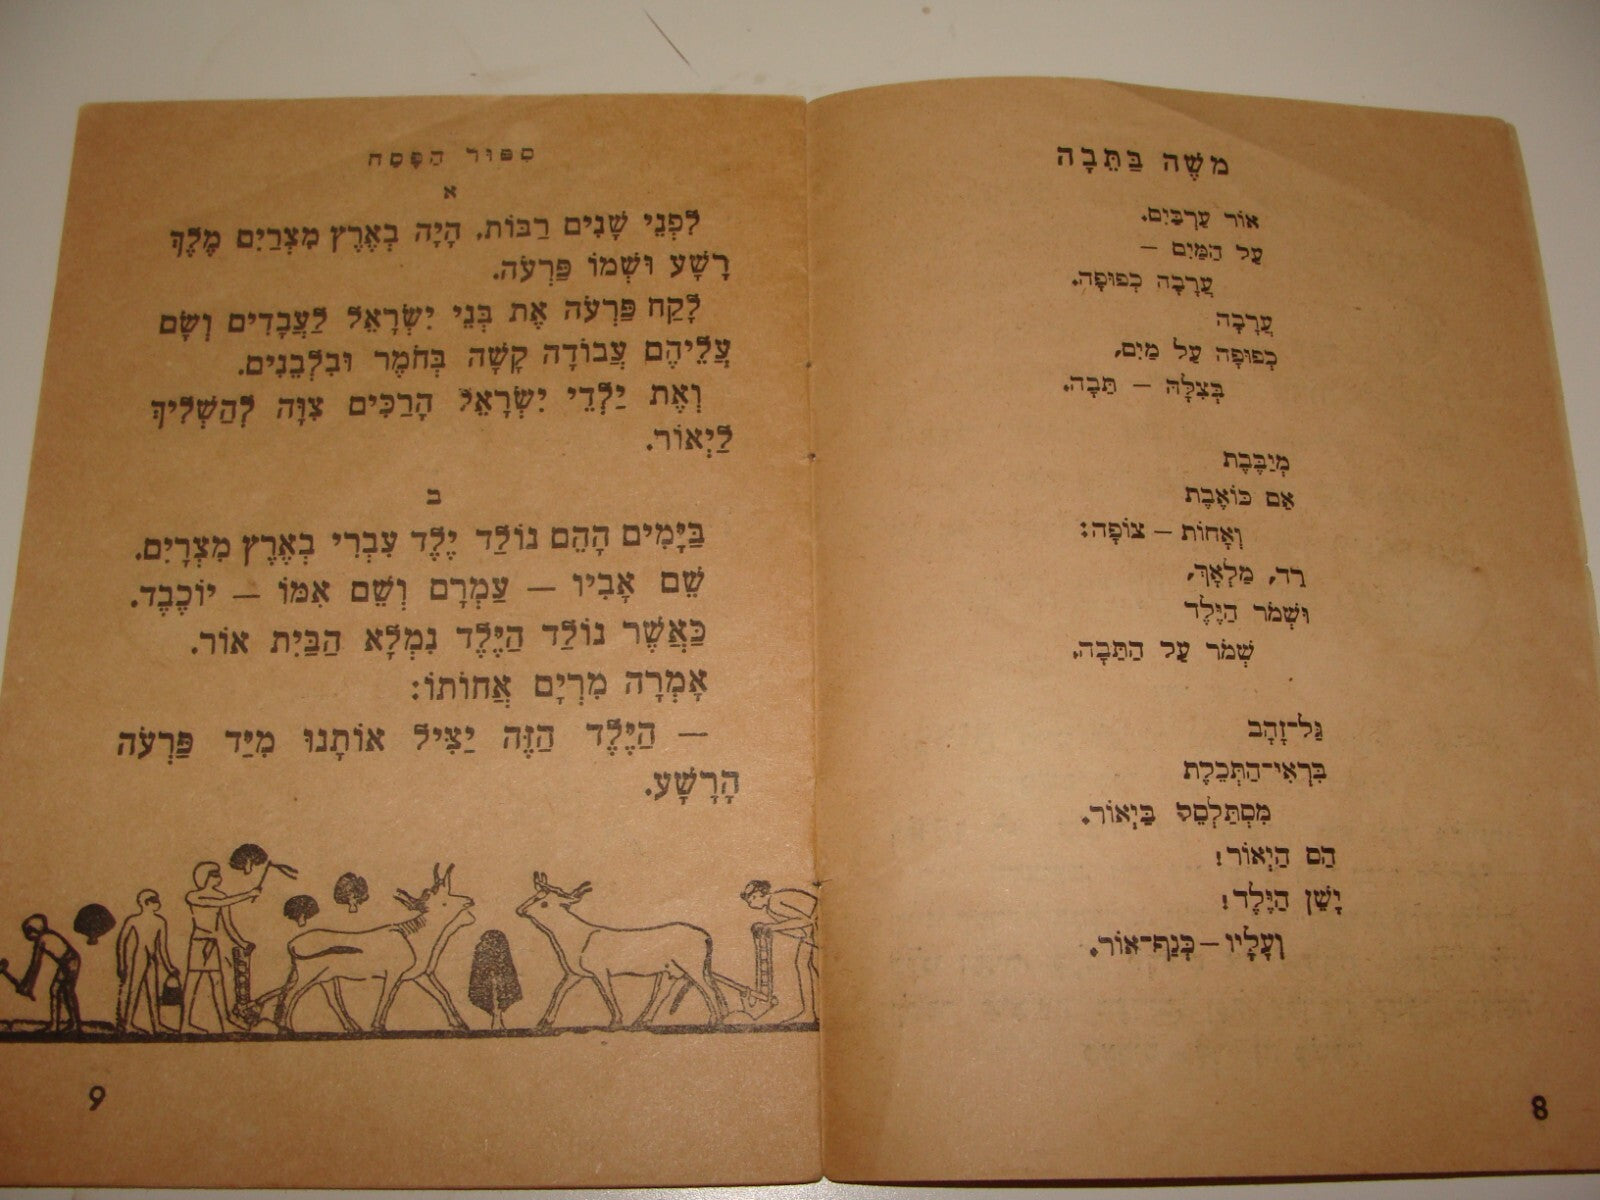 מֹשֶׁה בַּתֵּבָה
אוֹר עַרְבַּיִם.
עַל הַמַּיִם –
עֲרָבָה כְפוּפָה.
עֲרָבָה
כְפוּפָה עַל מַיִם,
בְּצִלָּהּ – תֵּבָה.
מְיַבֶּבֶת
אֵם כּוֹאֶבֶת
וְאָחוֹת – צוֹפָה:
רֵד, מַלְאָךְ,
וּשְׁמֹר הַיֶּלֶד
שְׁמֹר עַל הַתֵּבָה.
גַּל־זָהָב
בִּרְאִי־הַתְּכֵלֶת
מִסְתַּלְסֵל בַּיְאוֹר.
הַס הַיְאוֹר!
יָשֵׁן הַיֶּלֶד!
וְעָלָיו – כְּנַף־אוֹר.
8
סִפּוּר הַפֶּסַח
א
לִפְנֵי שָׁנִים רַבּוֹת, הָיָה בְאֶרֶץ מִצְרַיִם מֶלֶךְ
רָשָׁע וּשְׁמוֹ פַּרְעֹה.
לָקַח פַּרְעֹה אֶת בְּנֵי יִשְׂרָאֵל לַעֲבָדִים וְשָׂם
עֲלֵיהֶם עֲבוֹדָה קָשָׁה בְּחֹמֶר וּבִלְבֵנִים.
וְאֶת יַלְדֵי יִשְׂרָאֵל הָרַכִּים צִוָּה לְהַשְׁלִיךְ
לַיְאוֹר.
ב
בַּיָּמִים הָהֵם נוֹלַד יֶלֶד עִבְרִי בְאֶרֶץ מִצְרָיִם.
שֵׁם אָבִיו – עַמְרָם וְשֵׁם אִמּוֹ – יוֹכֶבֶד.
כַּאֲשֶׁר נוֹלַד הַיֶּלֶד נִמְלָא הַבַּיִת אוֹר.
אָמְרָה מִרְיָם אֲחוֹתוֹ:
– הַיֶּלֶד הַזֶּה יַצִּיל אוֹתָנוּ מִיַּד פַּרְעֹה
הָרָשָׁע.
9